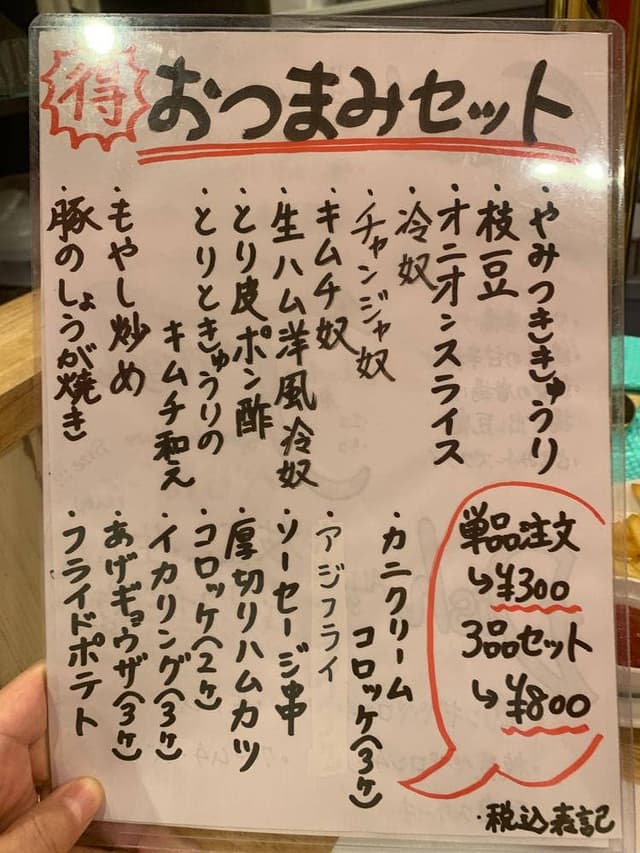 得 おつまみセット
・やみつききゅうり
・枝豆
・オニオンスライス
・冷奴
・チャンジャ奴
・キムチ奴
・生ハム洋風冷奴
・とり皮ポン酢
・とりときゅうりの
キムチ和え
・もやし炒め
・豚のしょうが焼き
単品注文
↳¥300
3品セット
↳¥800
・カニクリーム
コロッケ(3ヶ)
・アジフライ
・ソーセージ串
・厚切りハムカツ
・コロッケ(2ヶ)
・イカリング(3ヶ)
・あげギョウザ(3ヶ)
・フライドポテト
・税込表記